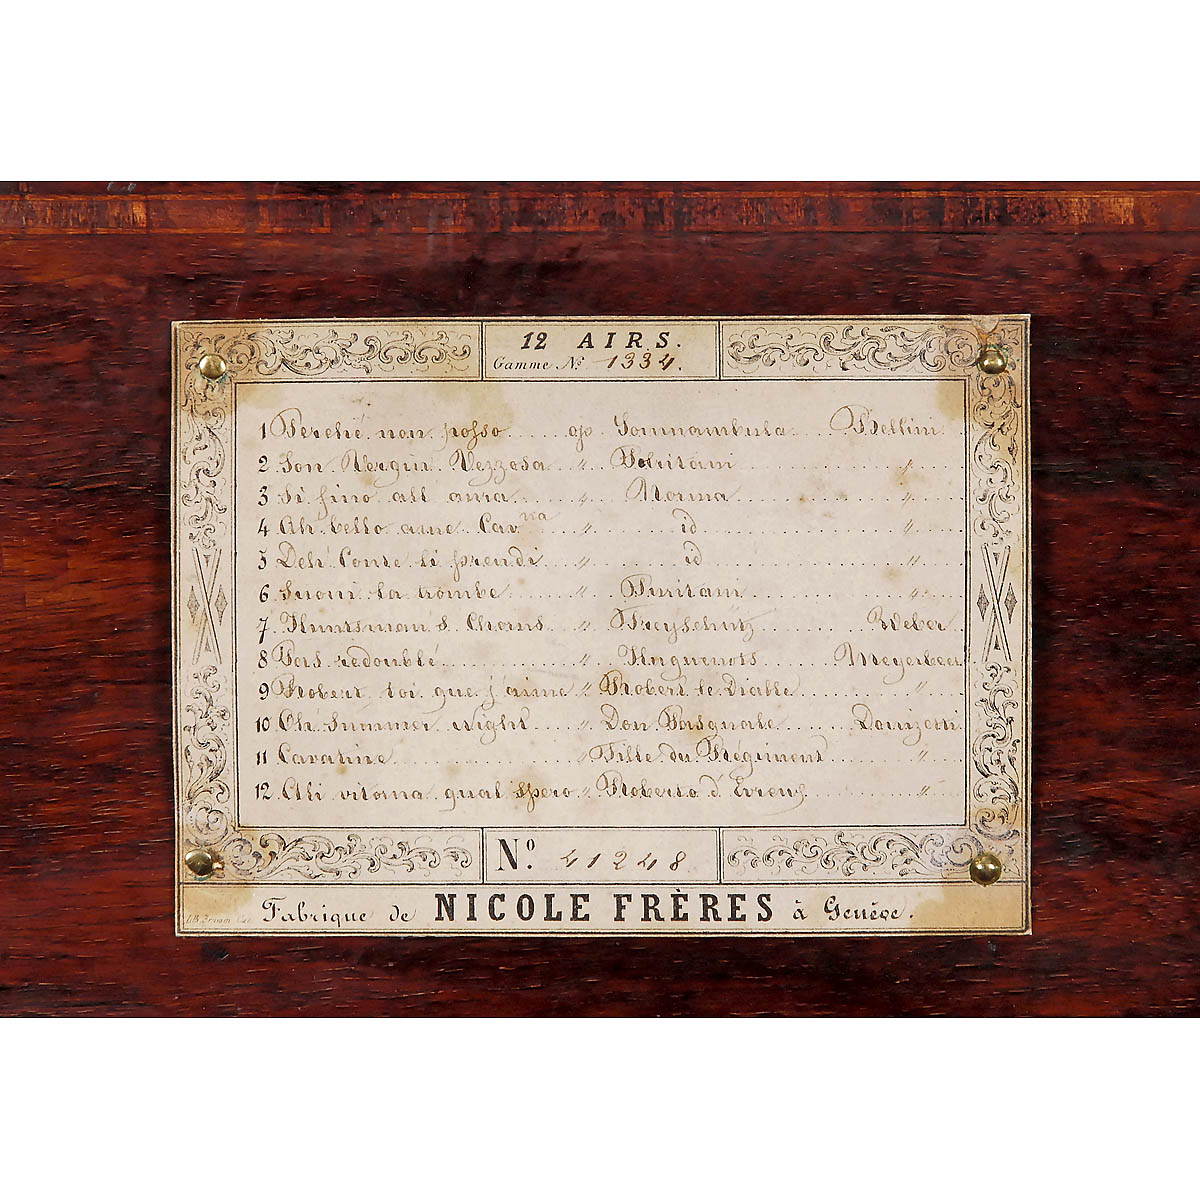 12 AIRS.
Gamme No. 1334.
1 Perché non posso op Sonnambula Bellini
2 Son Vergin Vezzosa " Puritani "
3 Si fino all aura " Norma "
4 Ah bello ame Cavna " id "
5 Deh Conte li prendi " id "
6 Suoni la trombe " Puritani "
7 Huntsman's Chorus " Freyschütz Weber
8 Pas redoublé " Huguenots Meyerbeer
9 Robert toi que j'aime " Robert le Diable "
10 Oh Summer Night " Don Pasquale Donizetti
11 Cavatine " Fille du Régiment "
12 Ah vitorna qual spero " Roberto d'Evreux "
No. 41248
Fabrique de NICOLE FRÈRES à Genève.